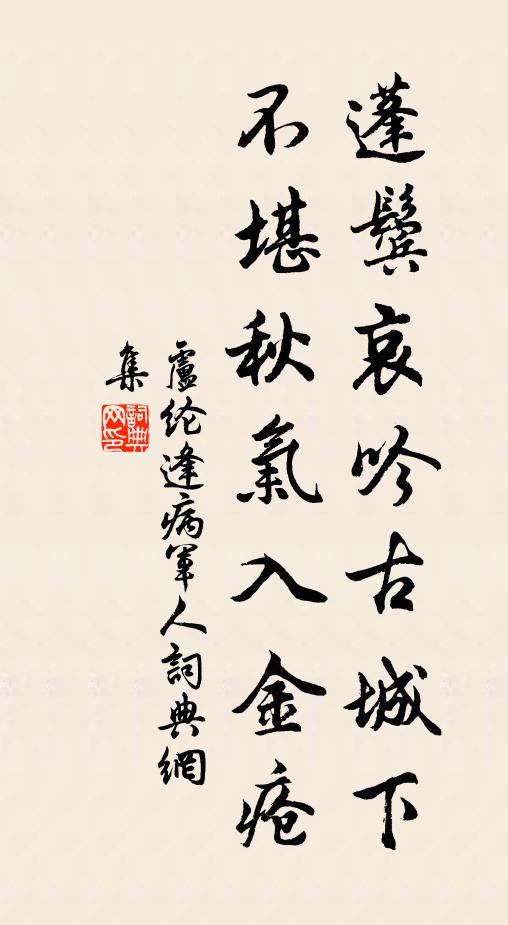 蓬鬢哀吟古城下
不堪秋氣入金疮
盧纶逢病軍人詞典網
集
詞典网印